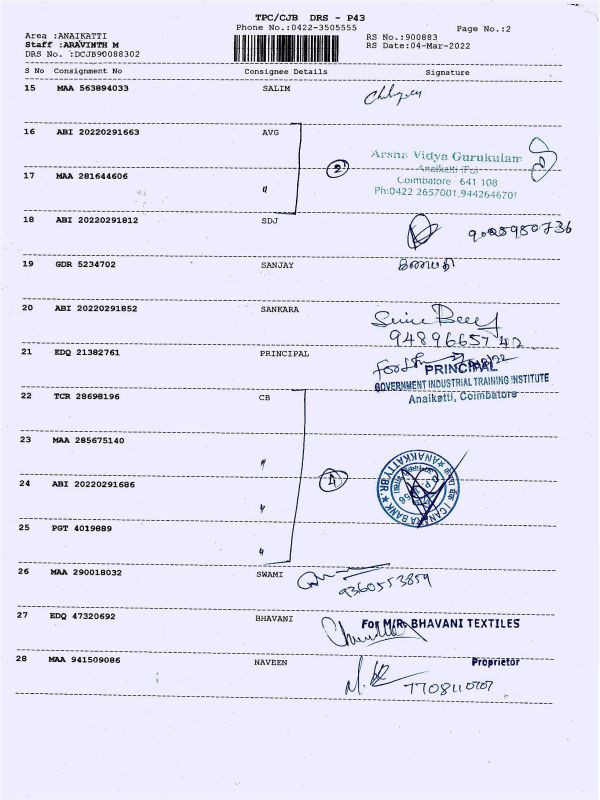 TPC/CJB DRS - P43
Phone No.:0422-3505555
Page No.:2
Area :ANAIKATTI
Staff :ARAVINTH M
DRS No. :DCJB90088302
RS No.:900883
RS Date:04-Mar-2022
S No Consignment No Consignee Details Signature
15 MAA 563894033 SALIM
16 ABI 20220291663 AVG
2
Arsha Vidya Gurukulam
Anaikatti (Po)
Coimbatore 641 108
Ph:0422 2657001,9442646701
17 MAA 281644606 "
18 ABI 20220291812 SDJ
19 GDR 5234702 SANJAY
20 ABI 20220291852 SANKARA
9489665742
21 EDQ 21382761 PRINCIPAL
For
PRINCIPAL
GOVERNMENT INDUSTRIAL TRAINING INSTITUTE
Anaikatti, Coimbatore
22 TCR 28698196 CB
23 MAA 285675140 "
4
24 ABI 20220291686 "
CANARA BANK ★ ANAKKATTY BR ★
25 PGT 4019889 "
26 MAA 290018032 SWAMI
9360553859
27 EDQ 47320692 BHAVANI
For M/R. BHAVANI TEXTILES
28 MAA 941509086 NAVEEN
Proprietor
7708110707